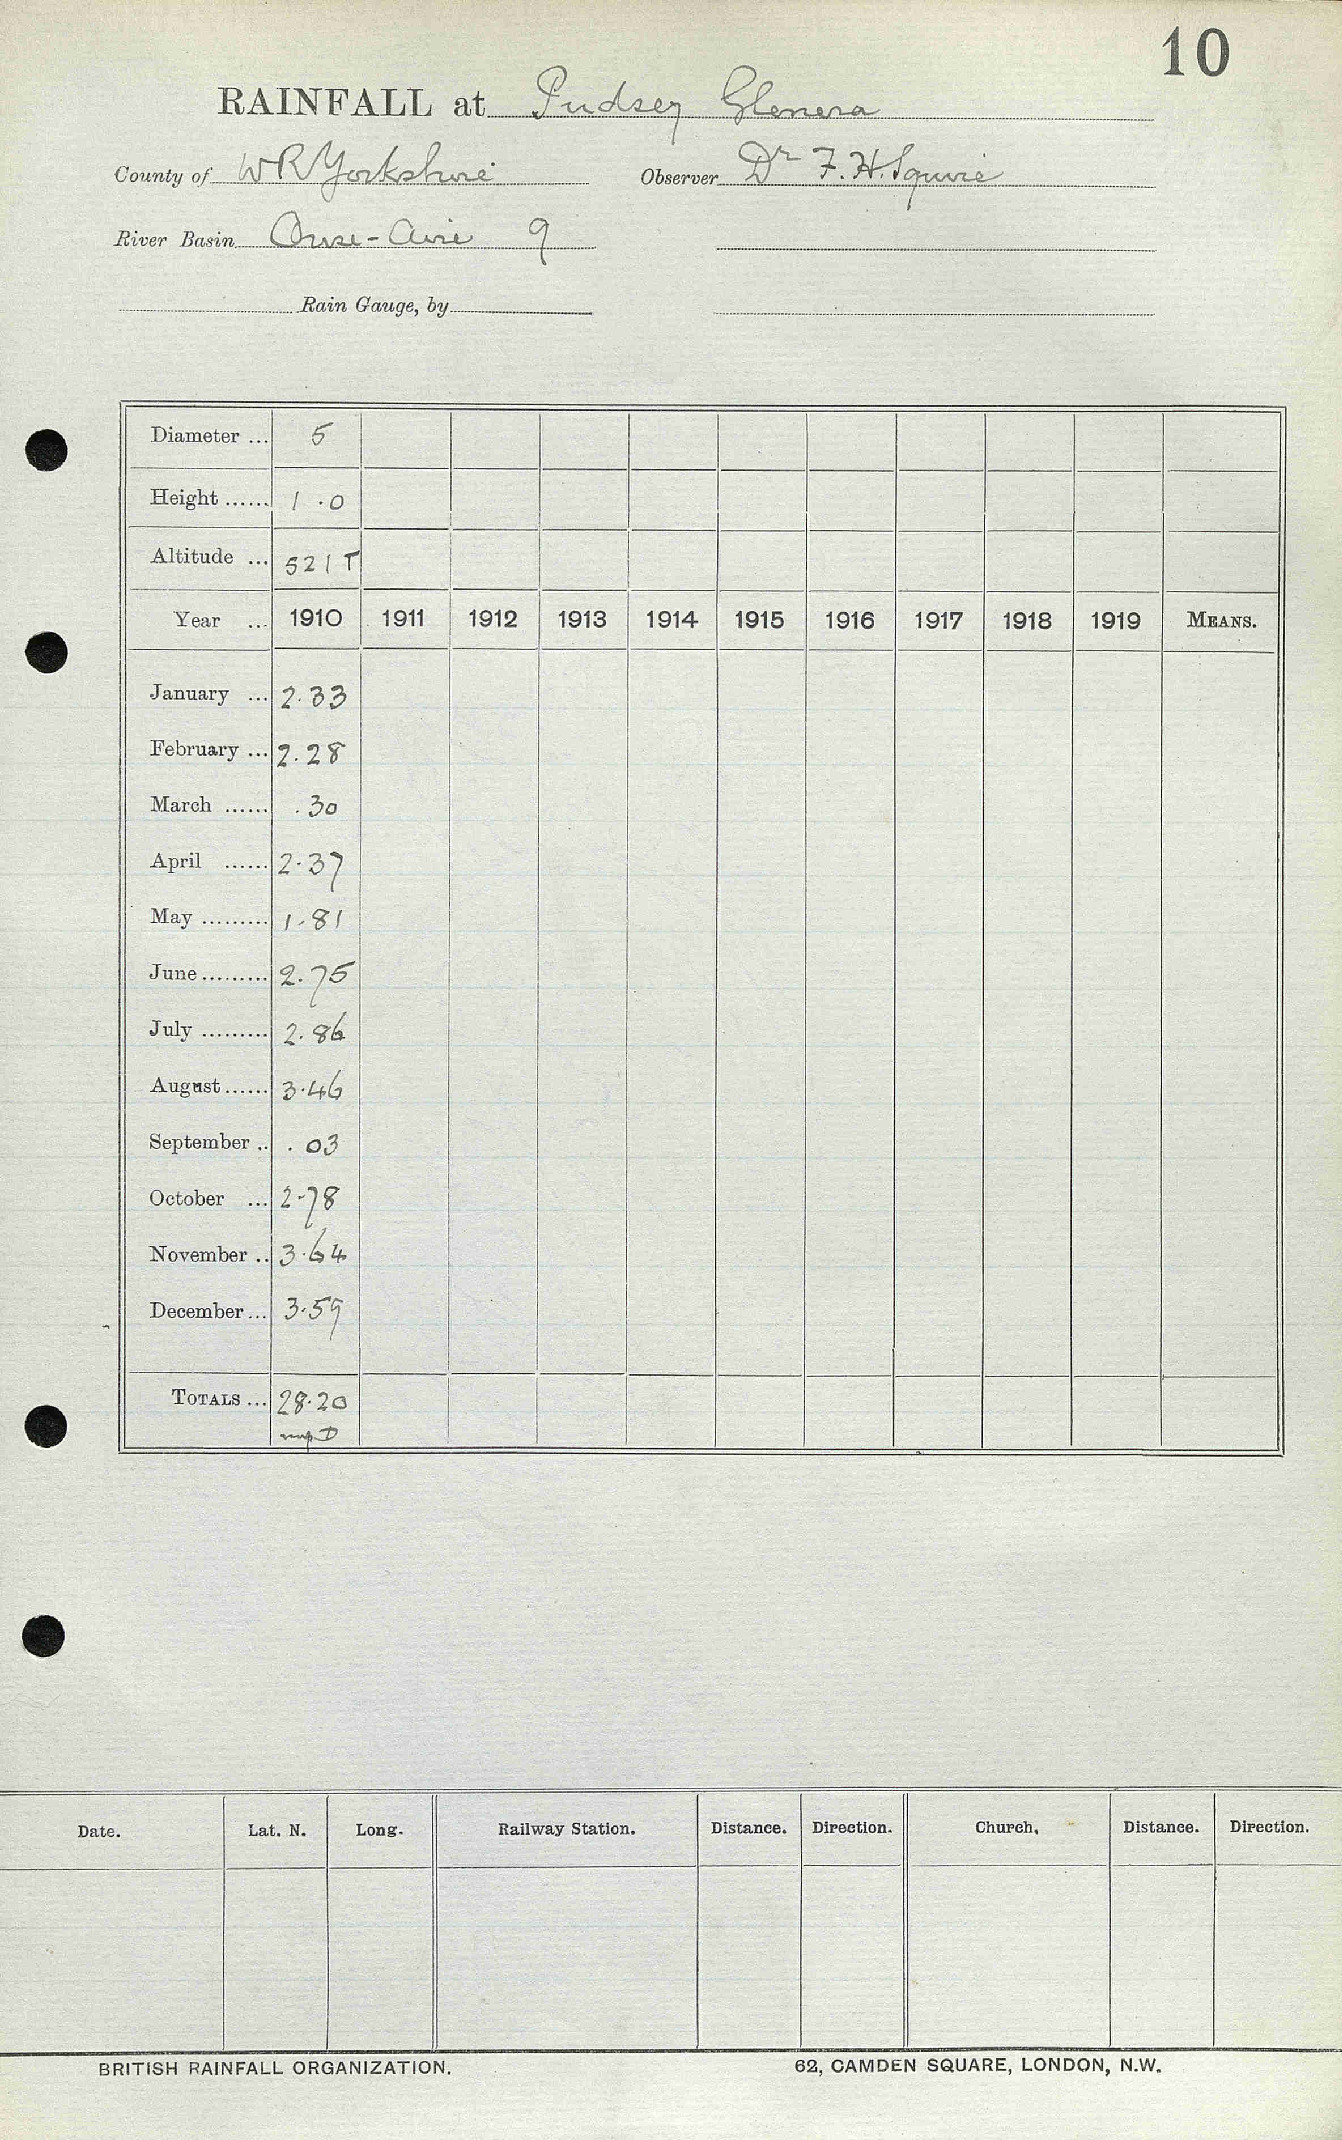 10
RAINFALL at Pudsey Glenera
County of WR Yorkshire Observer Dr F. H. Squire
River Basin Ouse-Aire 9
Rain Gauge, by
Diameter ... 5
Height ...... 1 .0
Altitude ... 521 T
Year ... 1910 1911 1912 1913 1914 1915 1916 1917 1918 1919 MEANS.
January ... 2.33
February ... 2.28
March ...... .30
April ...... 2.37
May ......... 1.81
June ......... 2.75
July ......... 2.86
August ...... 3.46
September .. .03
October ... 2.78
November .. 3.64
December ... 3.59
TOTALS ... 28.20
Date. Lat. N. Long. Railway Station. Distance. Direction. Church. Distance. Direction.
BRITISH RAINFALL ORGANIZATION. 62, CAMDEN SQUARE, LONDON, N.W.